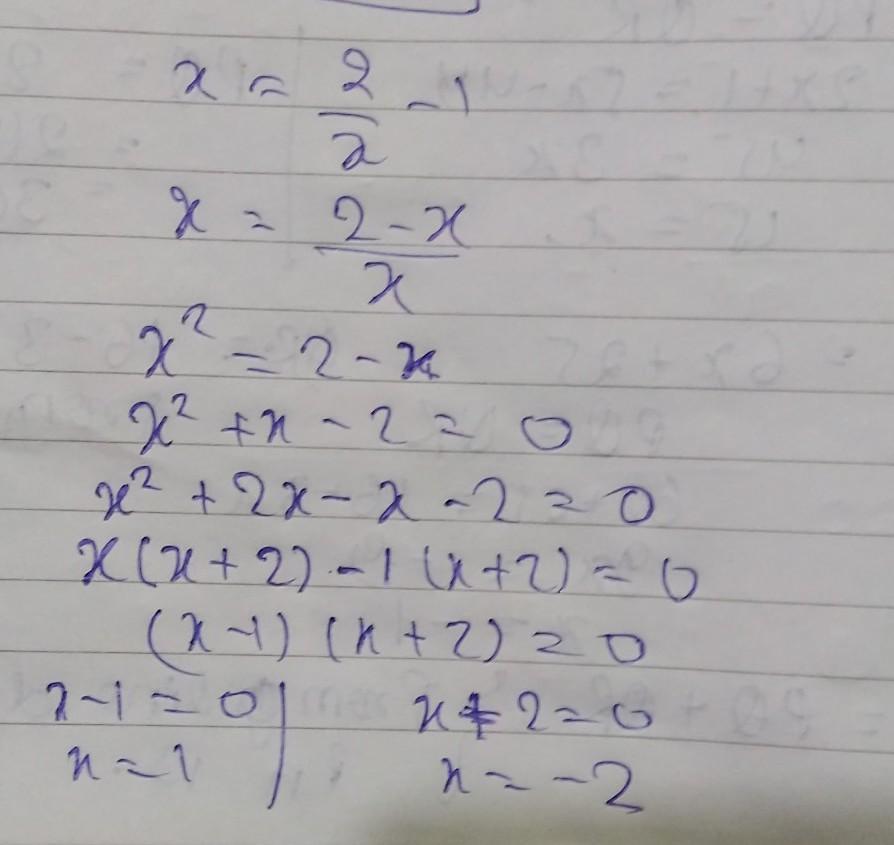 x = 2/x - 1
x = 2 - x/x
x² = 2 - x
x² + x - 2 = 0
x² + 2x - x - 2 = 0
x(x + 2) - 1(x + 2) = 0
(x - 1) (x + 2) = 0
x - 1 = 0 | x + 2 = 0
x = 1 | x = -2